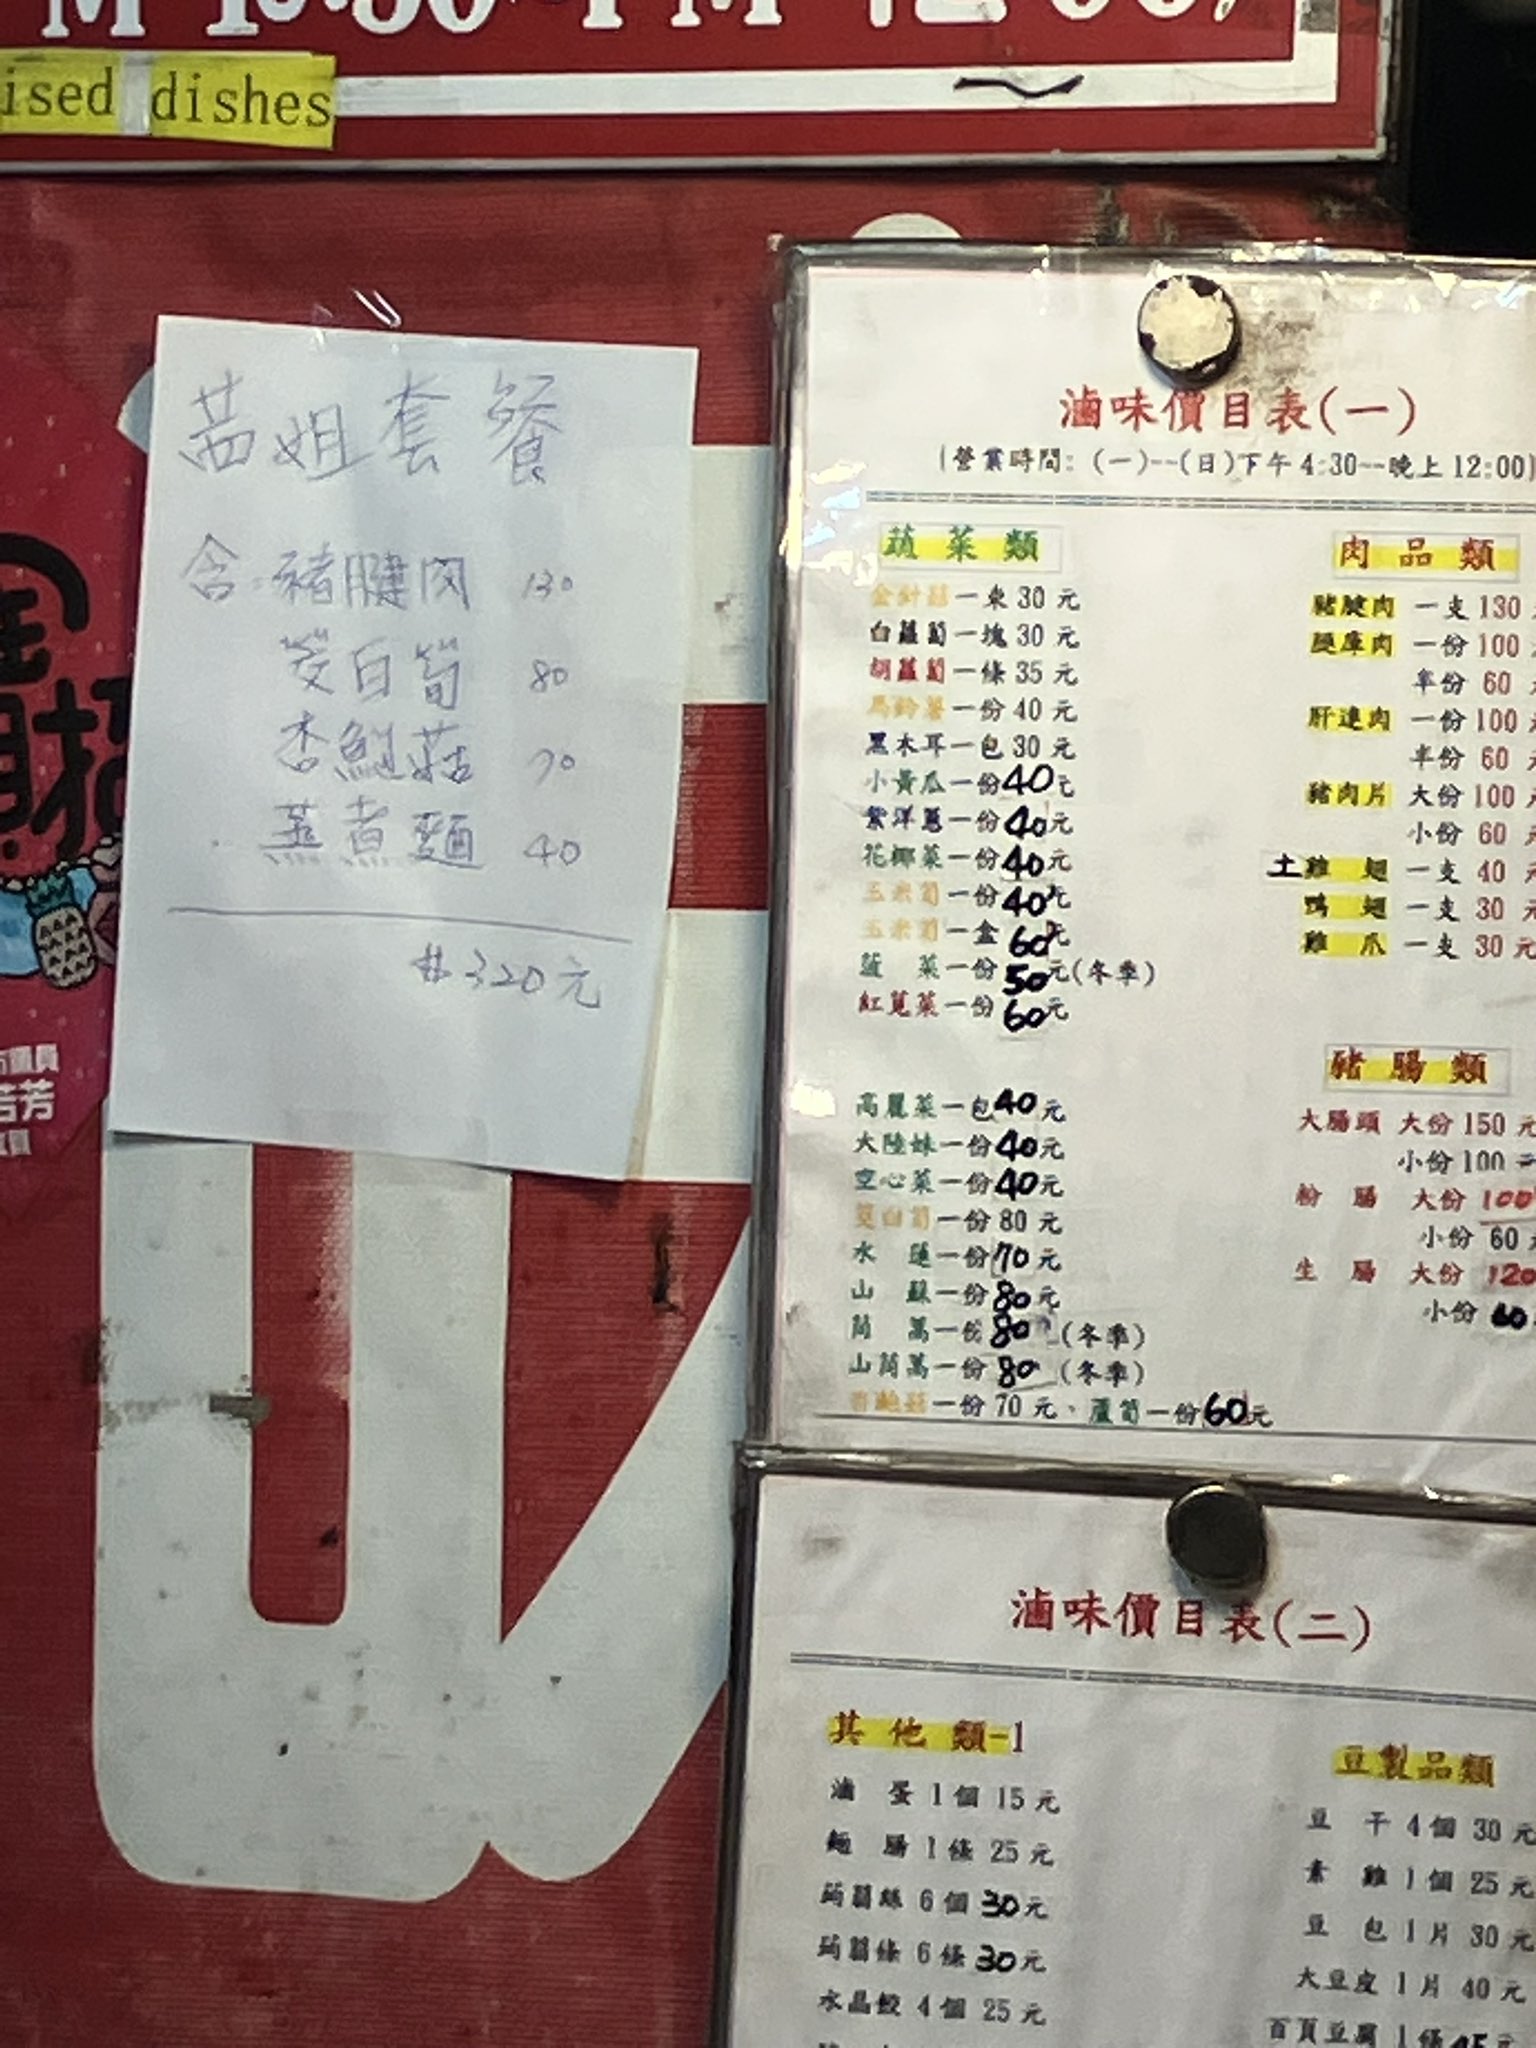 ised dishes
茜姐套餐
含:豬腱肉 130
茭白筍 80
杏鮑菇 70
蒸煮麵 40
#320元
滷味價目表(一)
(營業時間: (一)--(日)下午4:30--晚上12:00)
蔬菜類
金針菇一束30元
白蘿蔔一塊30元
胡蘿蔔一條35元
馬鈴薯一份40元
黑木耳一包30元
小黃瓜一份40元
紫洋蔥一份40元
花椰菜一份40元
玉米筍一份40元
玉米筍一盒60元
菠 菜一份50元(冬季)
紅莧菜一份60元
高麗菜一包40元
大陸妹一份40元
空心菜一份40元
茭白筍一份80元
水 蓮一份70元
山 蘇一份80元
茼 萵一份80 (冬季)
山茼萵一份80 (冬季)
杏鮑菇一份70元、蘆筍一份60元
肉品類
豬腱肉 一支130
腿庫肉 一份100
半份 60
肝連肉 一份100
半份 60
豬肉片 大份100
小份 60
土雞 翅 一支 40
鴨 翅 一支 30 元
雞 爪 一支 30 元
豬腸類
大腸頭 大份150元
小份100
粉 腸 大份100
小份 60
生 腸 大份120
小份 60
滷味價目表(二)
其他類-1
滷 蛋1個 15元
麵 腸1條 25元
蒟蒻絲 6個 30元
蒟蒻條 6條 30元
水晶餃 4個 25元
豆製品類
豆 干4個 30元
素 雞1個 25元
豆 包1片 30元
大豆皮1片 40元
百頁豆腐1條45元